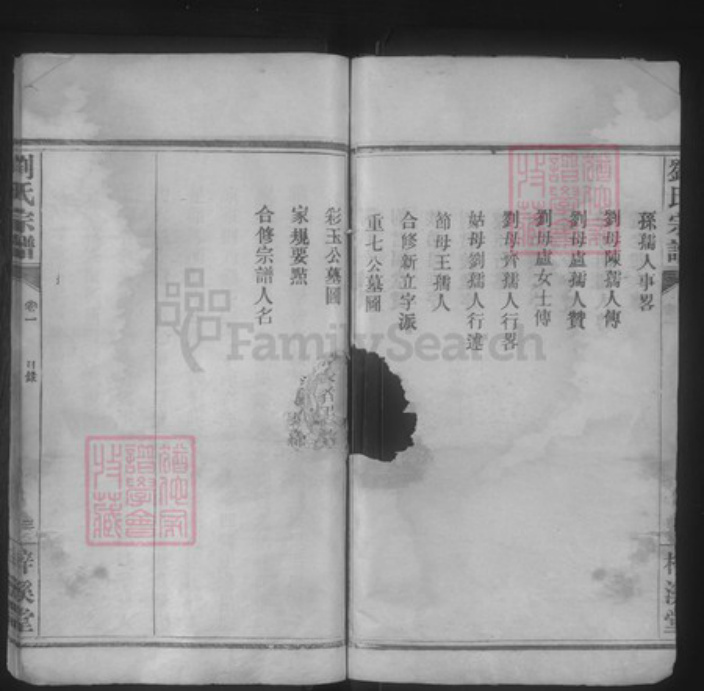 孫孺人事畧
劉母陳孺人傳
劉母盧孺人贊
劉母盧女士傳
劉母齊孺人行畧
姑母劉孺人行述
節母王孺人
合修新立字派
重七公墓圖
彩玉公墓圖
家規要㸃
合修宗譜人名
劉氏宗譜
卷一
目錄
梓溪堂
劉氏宗譜
FamilySearch